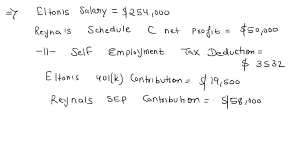 ⇒ Eltonis Salary = $254,000
Reyna's Schedule C net profit = $50,000
-11- Self Employment Tax Deduction =
$ 3532
Eltonis 401(k) Contribution = $ 19,500
Reynals SEP Contribution = $58,000